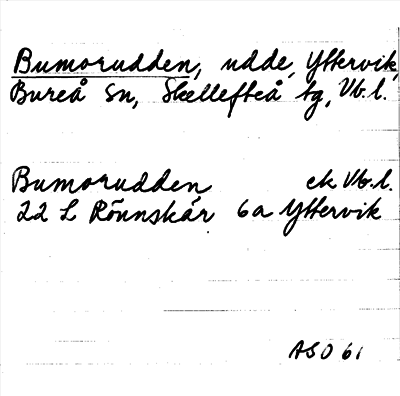 Bumorudden, udde, Yttervik,
Bureå sn, Skellefteå tg, Vb.l.
Bumorudden ek Vb.l.
22 L Rönnskär 6a Yttervik
ASO 61